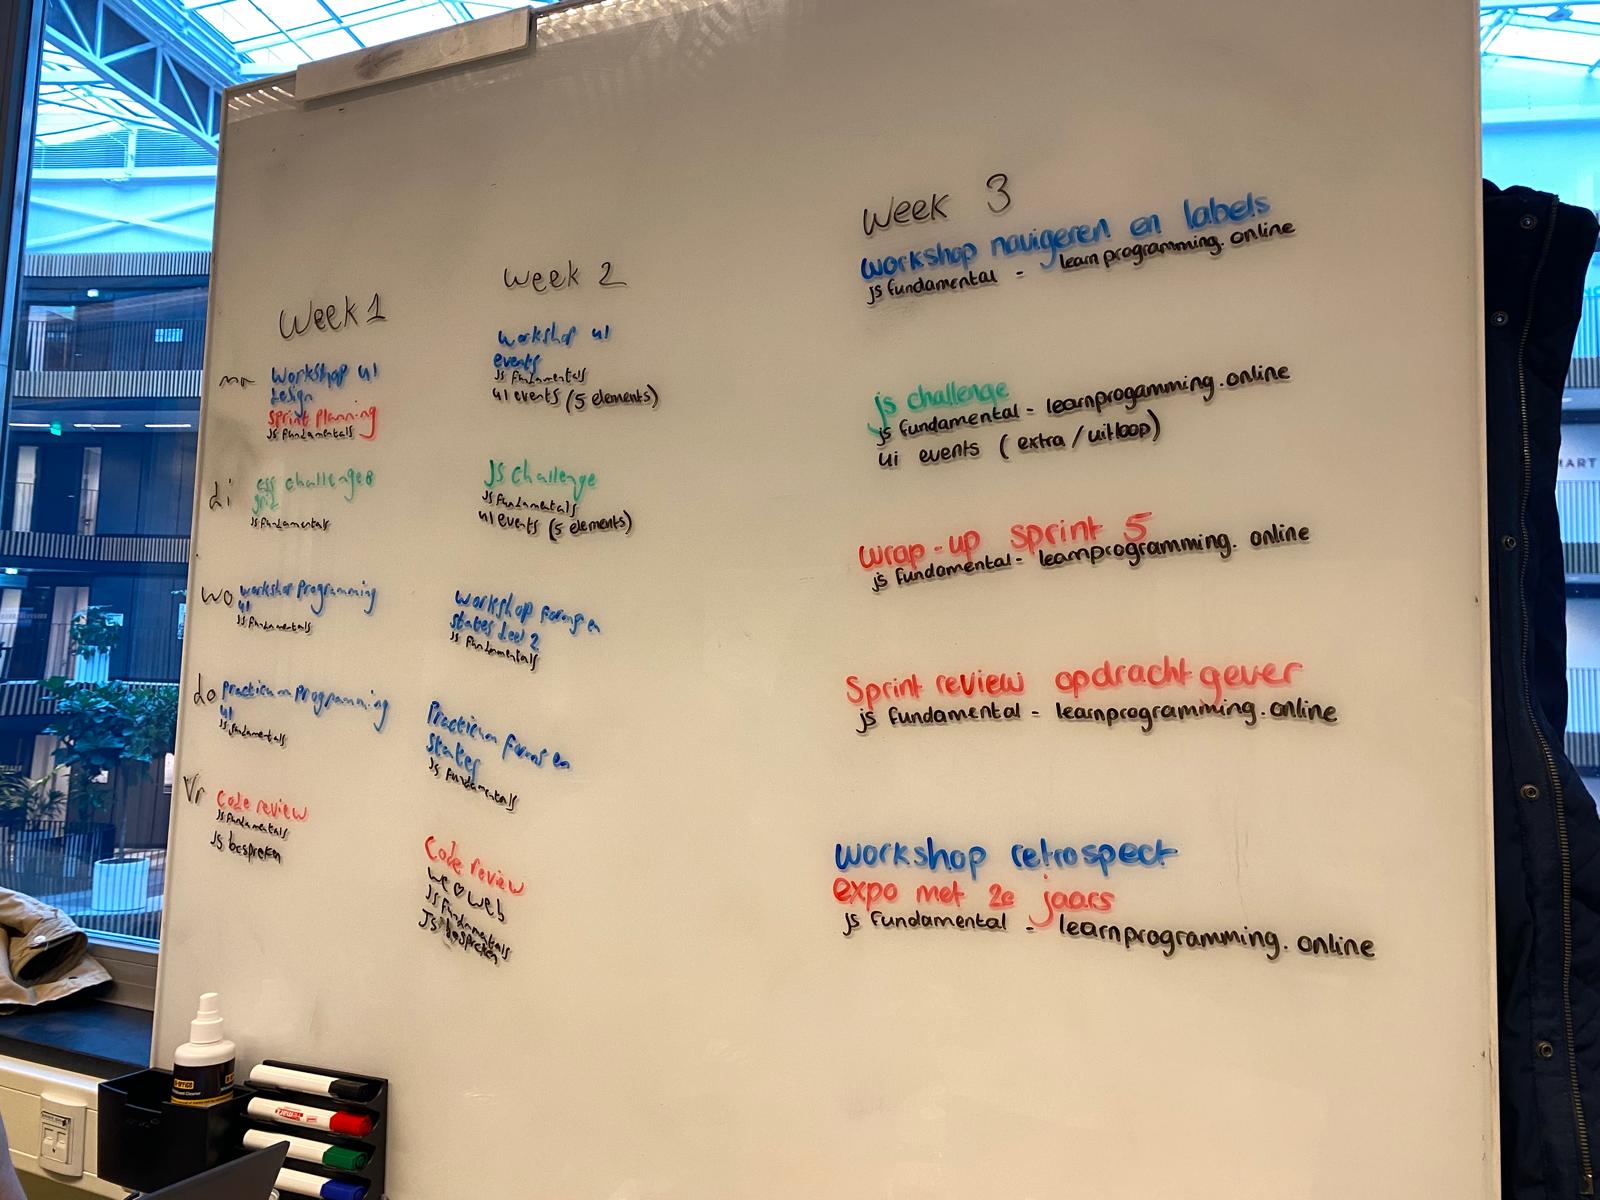 Week 1
ma
Workshop UI
design
Sprint planning
Js fundamentals
di
css challenges
grid
Js fundamentals
wo
workshop programming
UI
Js fundamentals
do
practicum programming
UI
Js fundamentals
Vr
Code review
Js fundamentals
Js bespreken
week 2
Workshop UI
events
Js fundamentals
UI events (5 elements)
JS challenge
Js fundamentals
UI events (5 elements)
workshop forms en
states deel 2
Js fundamentals
Practicum forms en
states
Js fundamentals
Code review
we ♡ web
Js fundamentals
Js bespreken
Week 3
workshop navigeren en labels
js fundamental - learnprogramming.online
js challenge
js fundamental - learnprogamming.online
ui events (extra/uitloop)
wrap-up sprint 5
js fundamental - learnprogramming.online
Sprint review opdrachtgever
js fundamental - learnprogramming.online
workshop retrospect
expo met 2e jaars
js fundamental - learnprogramming.online